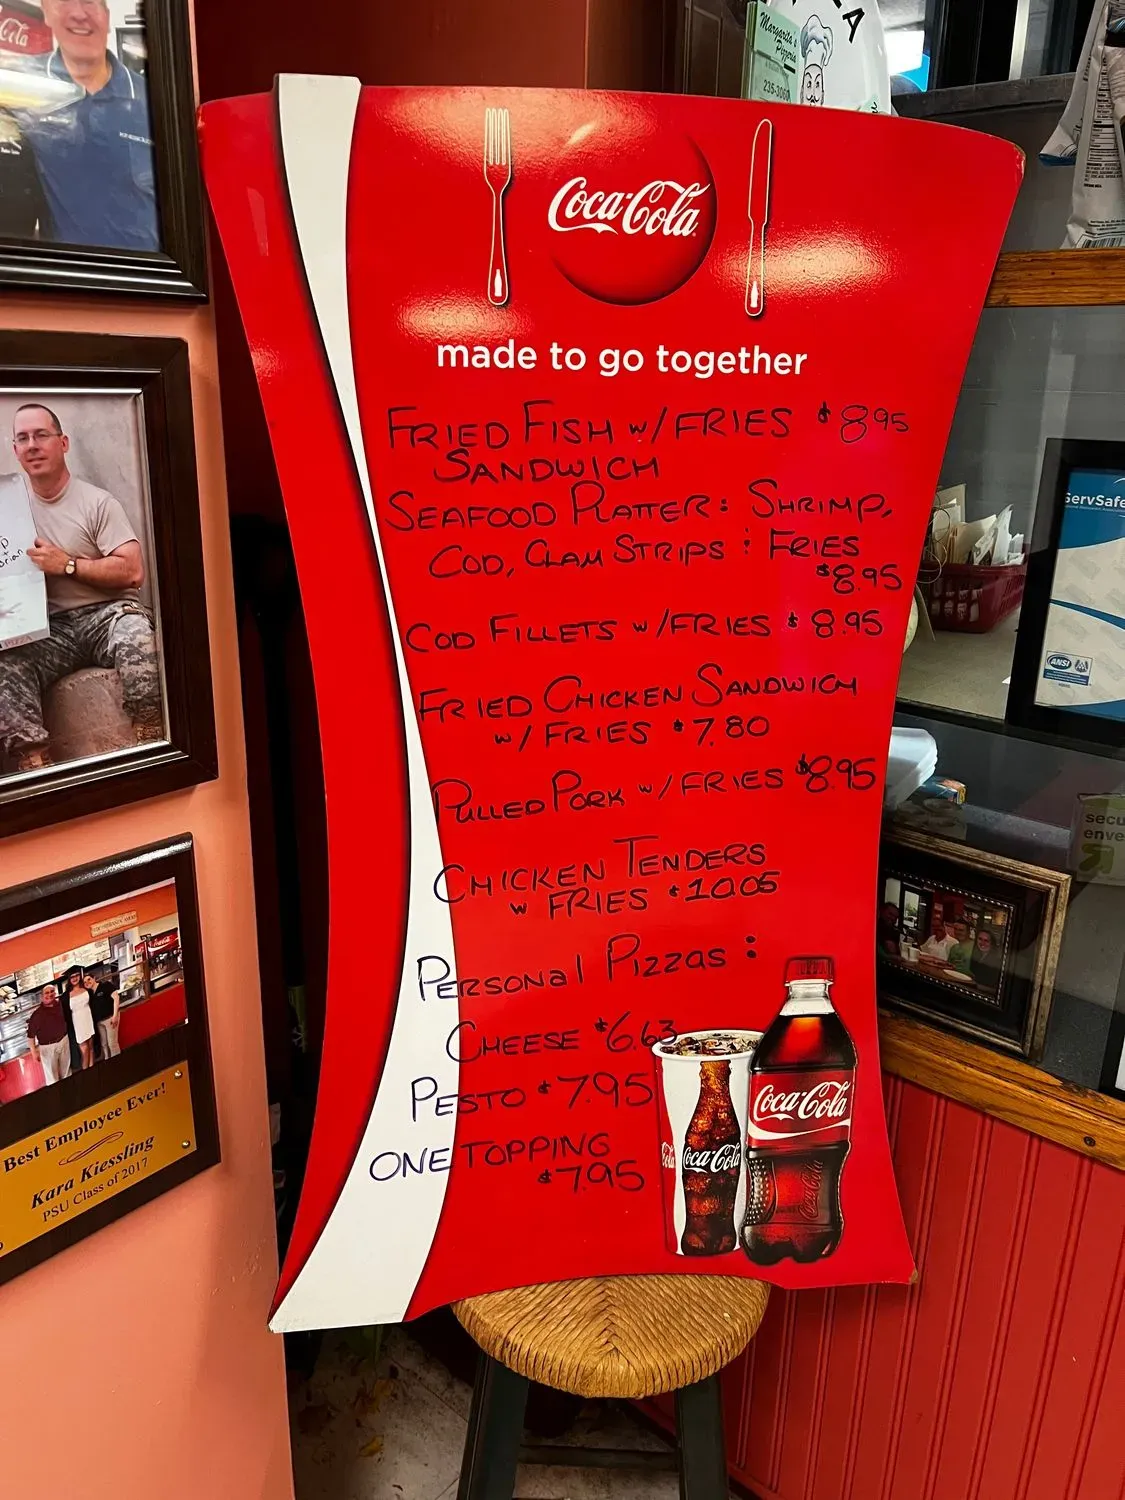 Coca-Cola
made to go together
FRIED FISH w/FRIES $8.95
SANDWICH
SEAFOOD PLATTER: SHRIMP,
COD, CLAM STRIPS : FRIES
$8.95
COD FILLETS w/FRIES $8.95
FRIED CHICKEN SANDWICH
w/ FRIES $7.80
PULLED PORK w/FRIES $8.95
CHICKEN TENDERS
w FRIES $10.05
PERSONAL PIZZAS:
CHEESE $6.63
PESTO $7.95
ONE TOPPING
$7.95
Coca-Cola
Coca-Cola
Margarita's
Pizzeria
ServSafe
ANSI
secu
enve
Best Employee Ever!
Kara Kiessling
PSU Class of 2017